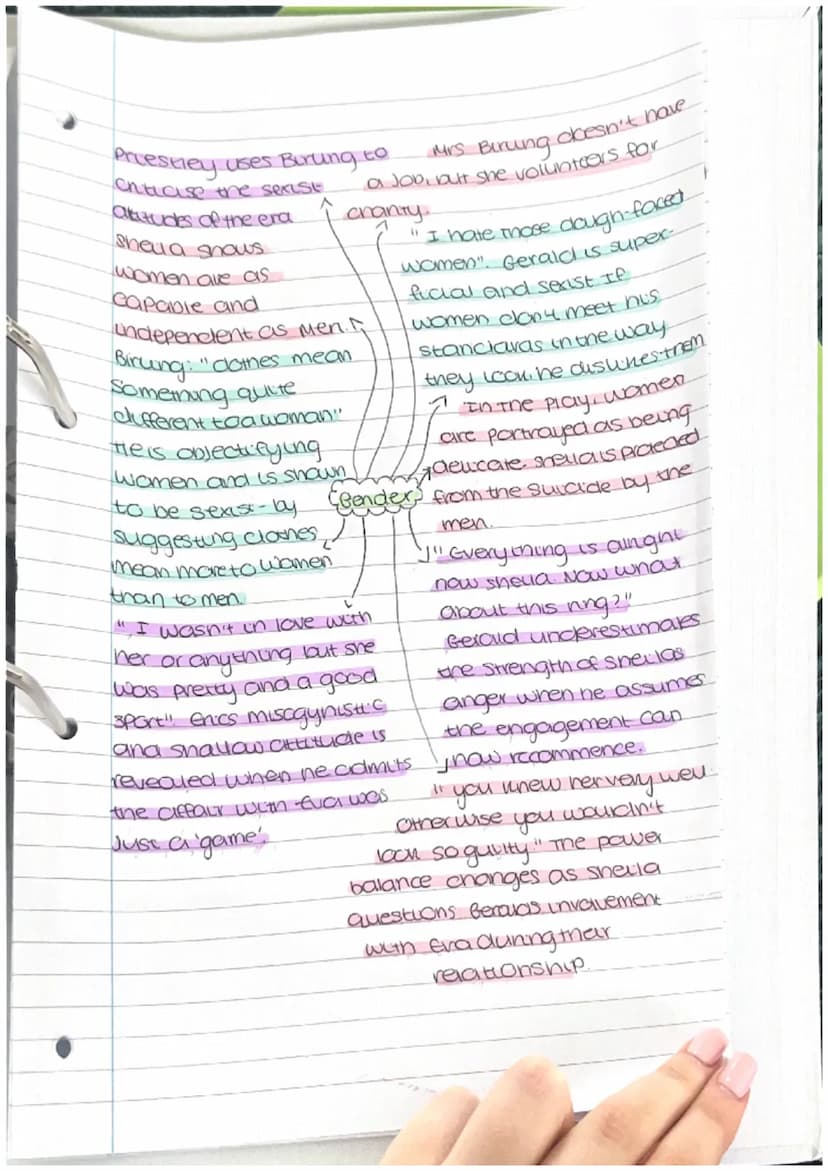 Priestley uses Birling to
criticise the sexist
attitudes of the era
Sheila shows
women are as
capable and
independent as men.
Birling: "clothes mean
something quite
different to a woman"
He is objectifying
women and is shown
to be sexist - by
suggesting clothes
mean more to women
than to men.
", I wasn't in love with
her or anything but she
was pretty and a good
sport". Erics misogynistic
and shallow attitude is
revealed when he admits
the affair with Eva was
just a 'game'.
Gender
Mrs Birling doesn't have
a job, but she volunteers for
charity.
"I hate those dough-faced
women". Gerald is super-
ficial and sexist If
women don't meet his
standards in the way
they look, he dislikes them
In the play, women
are portrayed as being
delicate. Sheila is protected
from the suicide by the
men.
"Everything is alright
now sheila. Now what
about this ring?"
Gerald underestimates
the strength of sheilas
anger when he assumes
the engagement can
now recommence.
"you knew her very well
otherwise you wouldn't
look so guilty." The power
balance changes as sheila
questions Geralds involvement
with Eva during their
relationship.